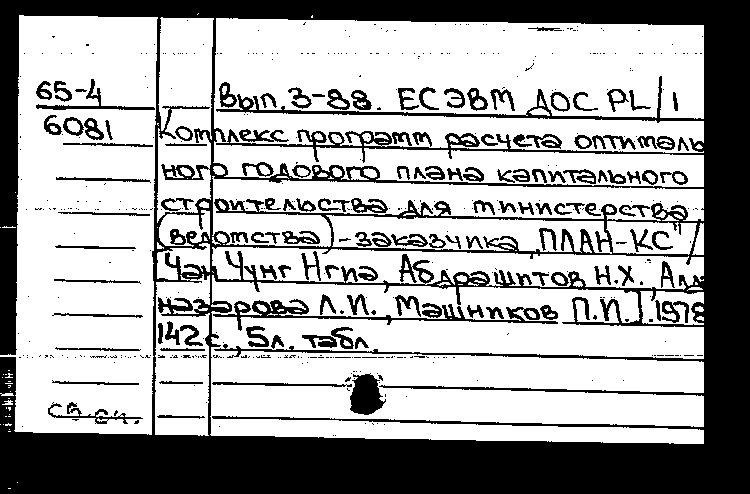 65-4 Вып. 3-88. ЕС ЭВМ ДОС PL/1
6081 Комплекс программ расчета оптималь
ного годового плана капитального
строительства для министерства
(ведомства)-заказчика „ПЛАН-КС"/
[Чан Чунг Нгиа, Абдрашитов Н.Х., Алла
назарова Л.И., Машников П.П.]. 1978
142 с., 5 л. табл.